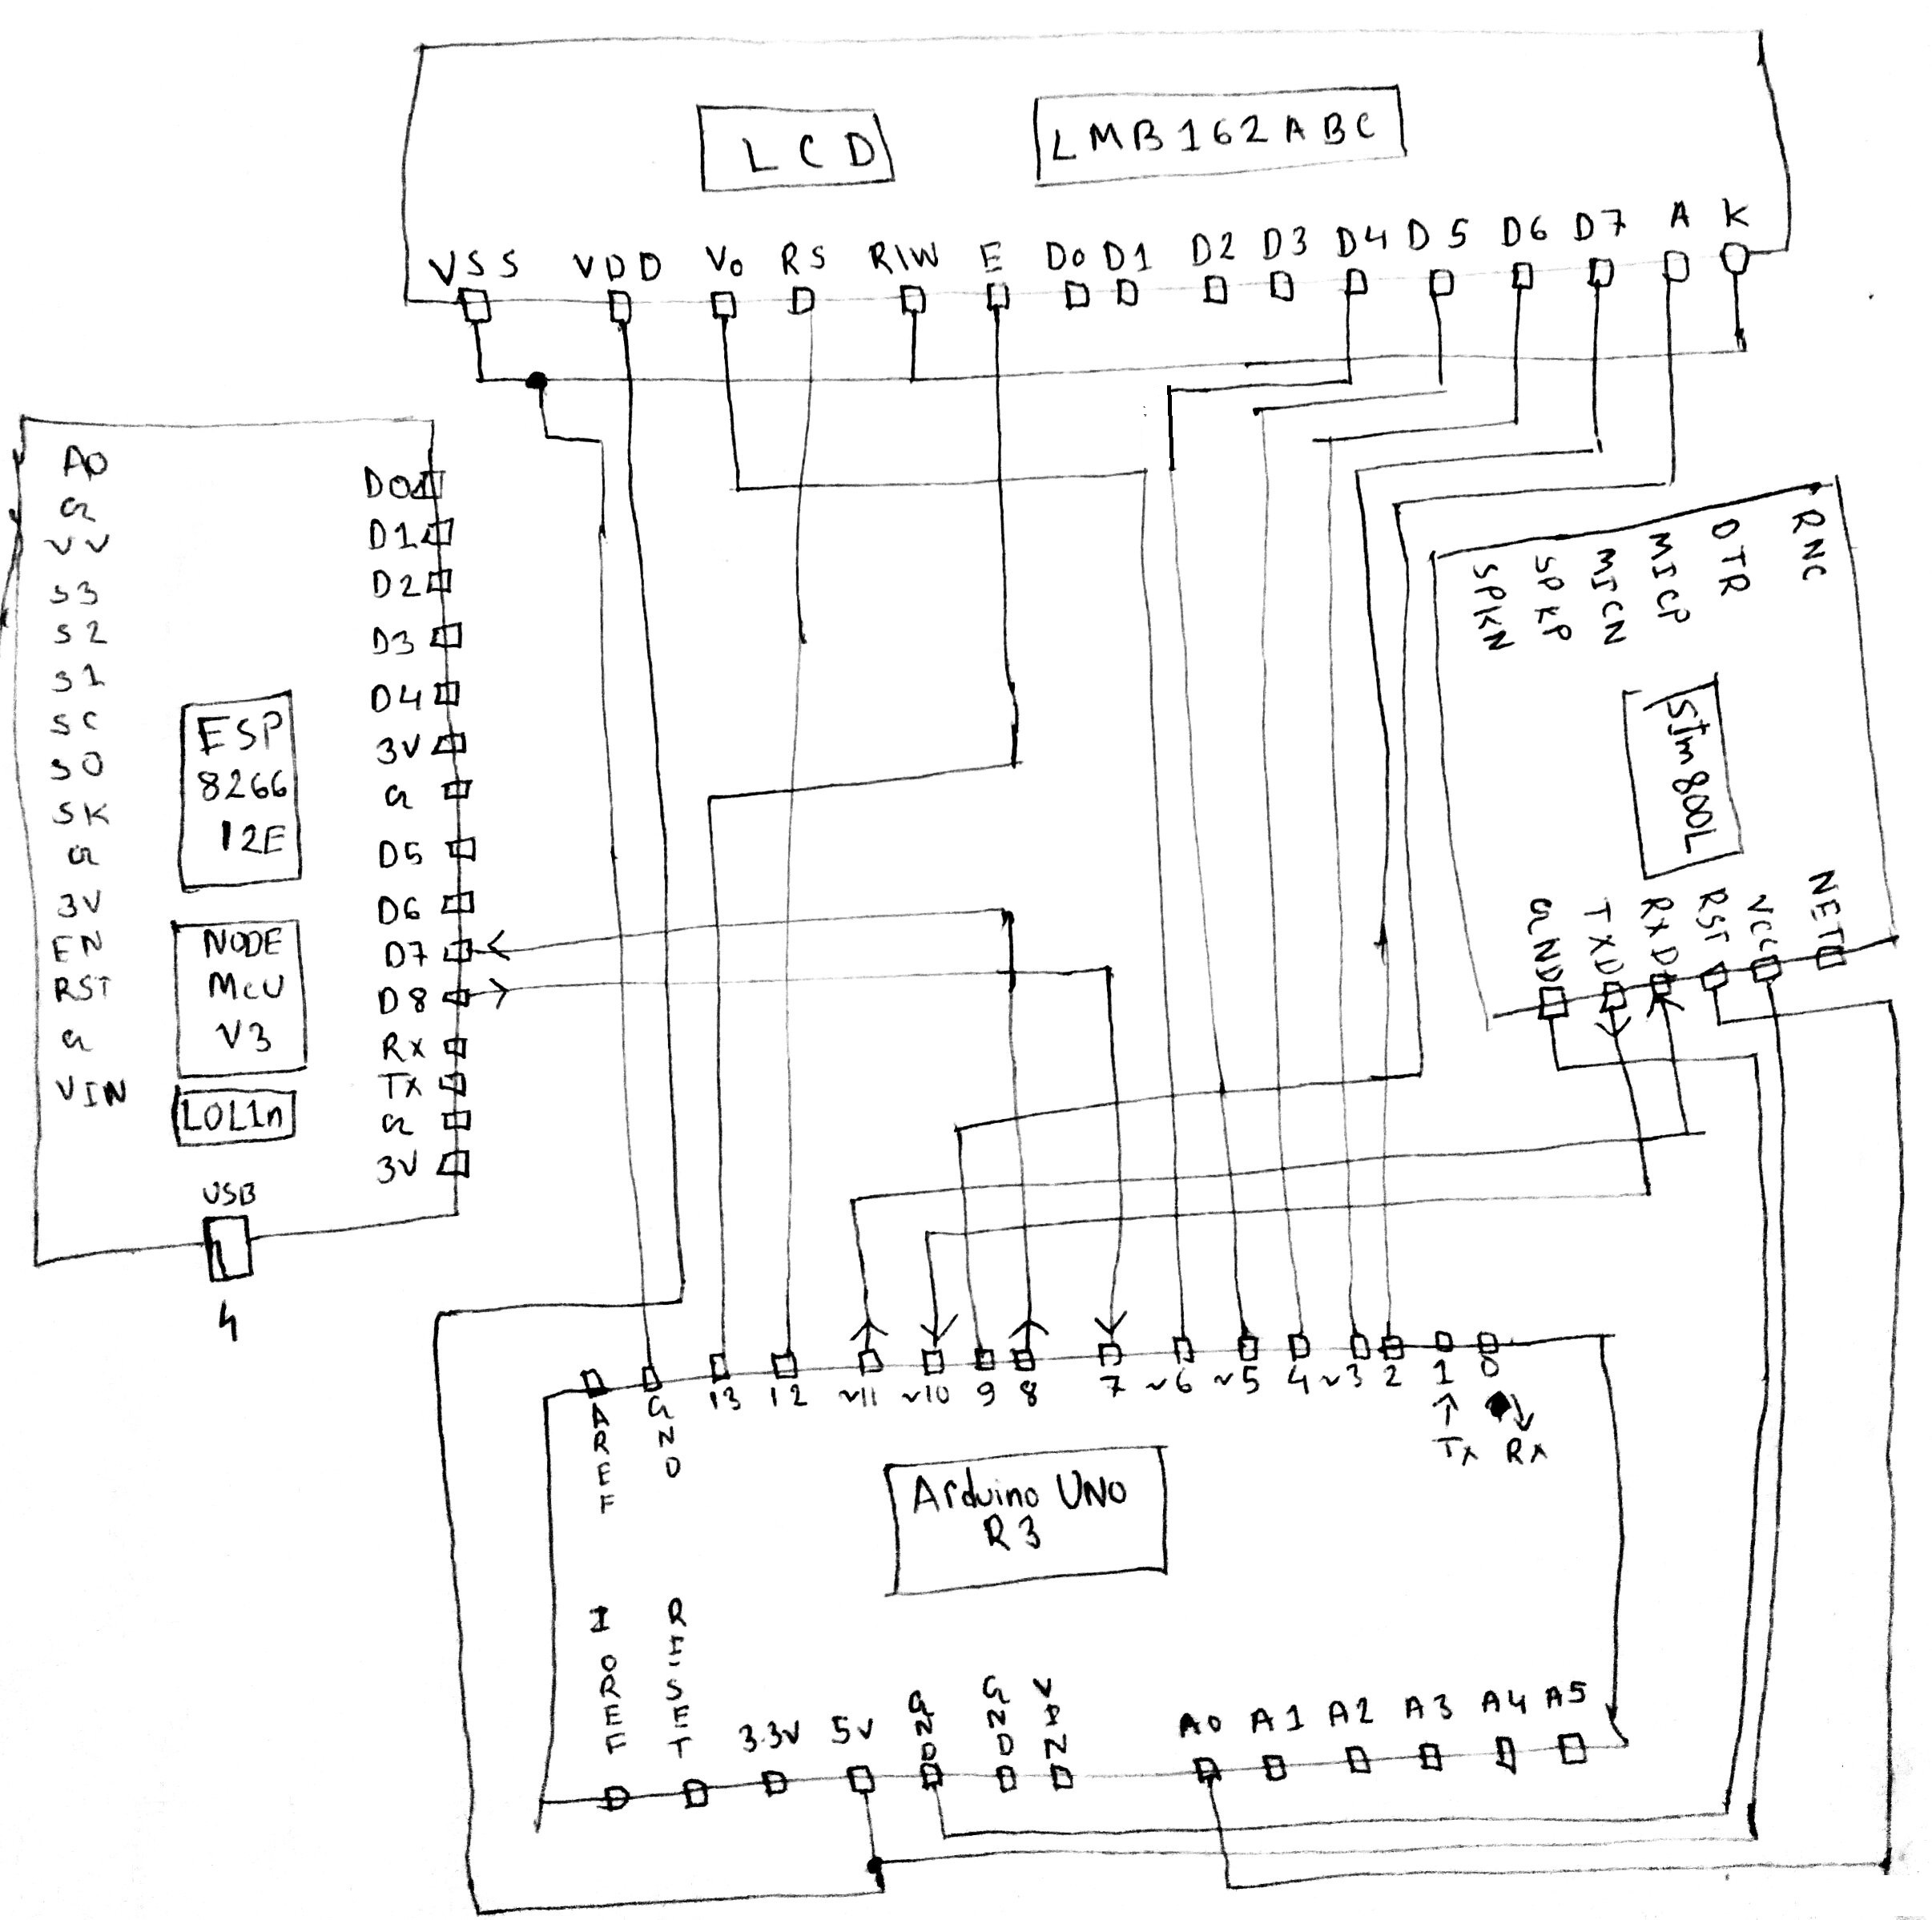 LCD
LMB162ABC
VSS VDD Vo RS R\W E Do D1 D2 D3 D4 D5 D6 D7 A K
A0
G
VV
S3
S2
S1
SC
S0
SK
G
3V
EN
RST
G
VIN
ESP
8266
12E
NODE
McU
V3
LOL1n
USB
D0
D1
D2
D3
D4
3V
G
D5
D6
D7
D8
Rx
Tx
G
3V
SPKN
SPKP
MICN
MICP
DTR
RNC
SIm800L
GND
TXD
RXD
RST
VCC
NET
AREF GND 13 12 ~11 ~10 9 8 7 ~6 ~5 4 ~3 2 1 0
Tx Rx
Arduino UNO
R3
IOREF RESET 3.3V 5V GND GND VIN A0 A1 A2 A3 A4 A5